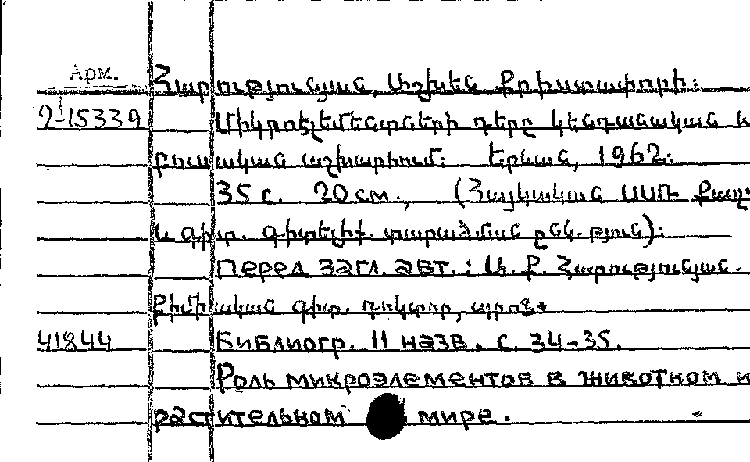 Арм. Հարությունյան, Աշխեն Քրիստափորի:
2-15339 Միկրոէլեմենտների դերը կենդանական և
բուսական աշխարհում: Երևան, 1962:
35 с. 20 см., (Հայկական ՍՍՌ Քաղ.
և գիտ. գիտելիք. տարածման ընկ. թյուն):
Перед загл. авт.: Ա. Ք. Հարությունյան.
Քիմիական գիտ. դոկտոր, պրոֆ.
41844 Библиогр. 11 назв. с. 34-35.
Роль микроэлементов в животном и
растительном мире.